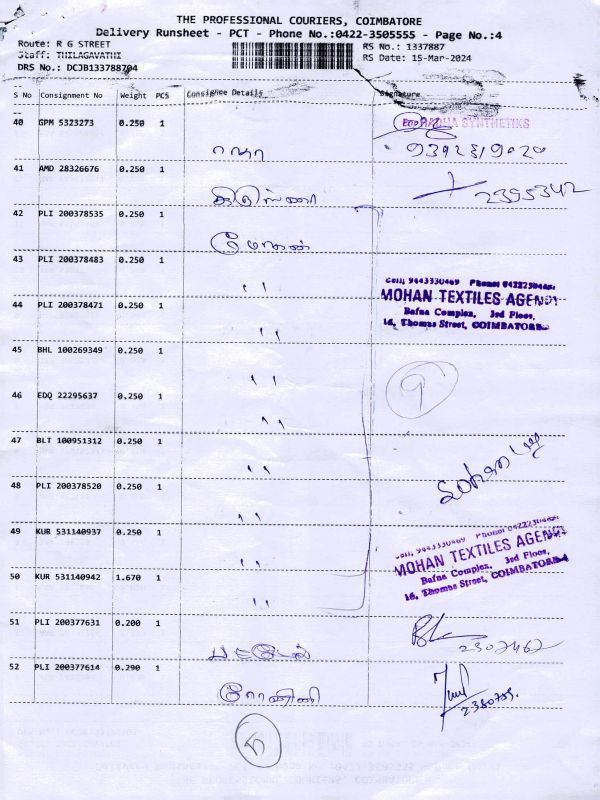 THE PROFESSIONAL COURIERS, COIMBATORE
Delivery Runsheet - PCT - Phone No.:0422-3505555 - Page No.:4
Route: R G STREET
RS No.: 1337887
Staff: THILAGAVATHI
RS Date: 15-Mar-2024
DRS No.: DCJB133788704
S No Consignment No Weight PCS Consignee Details Signature
40 GPM 5323273 0.250 1
RADHA SYNTHETICS
ராதா
41 AMD 28326676 0.250 1
2395342
42 PLI 200378535 0.250 1
மோகன்
43 PLI 200378483 0.250 1
" Cell: 9443330469
MOHAN TEXTILES AGENCY
Bafna Complex, 3rd Floor,
16, Thomas Street, COIMBATORE
44 PLI 200378471 0.250 1
"
45 BHL 100269349 0.250 1
"
9
46 EDQ 22295637 0.250 1
"
47 BLT 100951312 0.250 1
"
48 PLI 200378520 0.250 1
"
49 KUR 531140937 0.250 1
"
Cell: 9443330469
MOHAN TEXTILES AGENCY
Bafna Complex, 3rd Floor,
16, Thomas Street, COIMBATORE
50 KUR 531140942 1.670 1
"
51 PLI 200377631 0.200 1
படேல்
2307467
52 PLI 200377614 0.290 1
ரோஹினி
2380789.